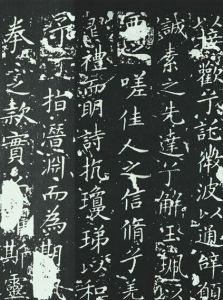 接歡兮託微波以通辭
誠素之先達兮解玉珮
要嗟佳人之信脩兮羌
習禮而明詩抗瓊珶以和
予兮指潛淵而為期
拳之款實斯靈